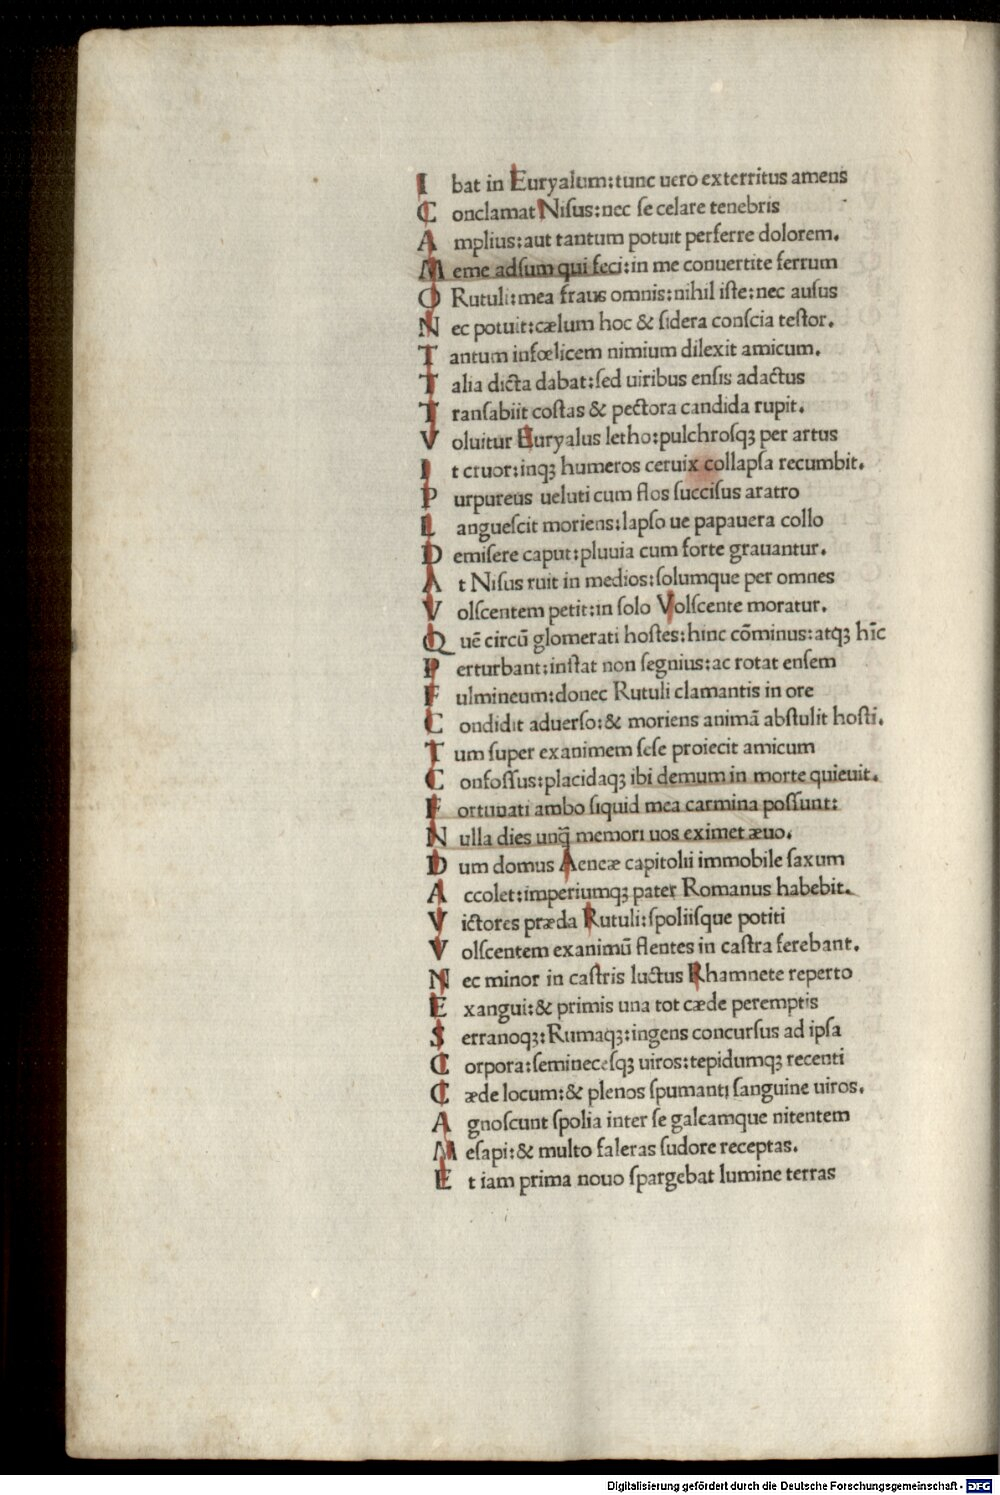 I bat in Euryalum:tunc uero exterritus amens
C onclamat Niſus:nec ſe celare tenebris
A mplius:aut tantum potuit perferre dolorem.
M eme adſum qui feci:in me conuertite ferrum
O Rutuli:mea fraus omnis:nihil iſte:nec auſus
N ec potuit:cælum hoc & ſidera conſcia teſtor.
T antum infœlicem nimium dilexit amicum.
T alia dicta dabat:ſed uiribus enſis adactus
T ranſabiit coſtas & pectora candida rupit.
V oluitur Euryalus letho:pulchroſqꝫ per artus
I t cruor:inqꝫ humeros ceruix collapſa recumbit.
P urpureus ueluti cum flos ſucciſus aratro
L angueſcit moriens:lapſo ue papauera collo
D emiſere caput:pluuia cum forte grauantur.
A t Niſus ruit in medios:ſolumque per omnes
V olſcentem petit:in ſolo Volſcente moratur.
Q uē circū glomerati hoſtes:hinc cōminus:atqꝫ hīc
P erturbant:inſtat non ſegnius:ac rotat enſem
F ulmineum:donec Rutuli clamantis in ore
C ondidit aduerſo:& moriens animā abſtulit hoſti.
T um ſuper exanimem ſeſe proiecit amicum
C onfoſſus:placidaqꝫ ibi demum in morte quieuit.
F ortunati ambo ſiquid mea carmina poſſunt:
N ulla dies unq̄ memori uos eximet æuo.
D um domus Aeneæ capitolii immobile ſaxum
A ccolet:imperiumqꝫ pater Romanus habebit.
V ictores præda Rutuli:ſpoliiſque potiti
V olſcentem exanimū flentes in caſtra ferebant.
N ec minor in caſtris luctus Rhamnete reperto
E xangui:& primis una tot cæde peremptis
S erranoqꝫ:Rumaqꝫ:ingens concurſus ad ipſa
C orpora:ſemineceſqꝫ uiros:tepidumqꝫ recenti
C æde locum:& plenos ſpumanti ſanguine uiros.
A gnoſcunt ſpolia inter ſe galeamque nitentem
M eſapi:& multo faleras ſudore receptas.
E t iam prima nouo ſpargebat lumine terras
Digitalisierung gefördert durch die Deutsche Forschungsgemeinschaft - DFG